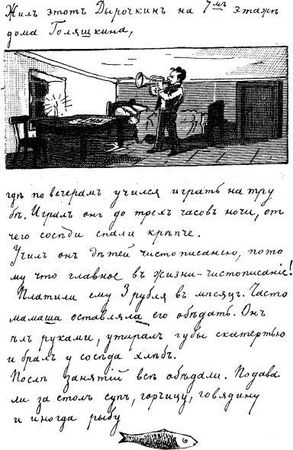 Жилъ этотъ Дырочкинъ на 7мъ этажѣ
дома Голяшкина,
гдѣ по вечерамъ учился играть на тру
бѣ. Игралъ онъ до трехъ часовъ ночи, от
чего сосѣди спали крѣпче.
Училъ онъ дѣтей чистописанью, пото
му что главное въ жизни-чистописаніе!
Платили ему 3 рубля въ мѣсяцъ. Часто
мамаша оставляла его обѣдать. Онъ
ѣлъ руками, утиралъ губы скатертью
и бралъ у сосѣда хлѣбъ.
Послѣ занятій всѣ обѣдали. Подава
ли за столъ супъ, горчицу, говядину
и иногда рыбу